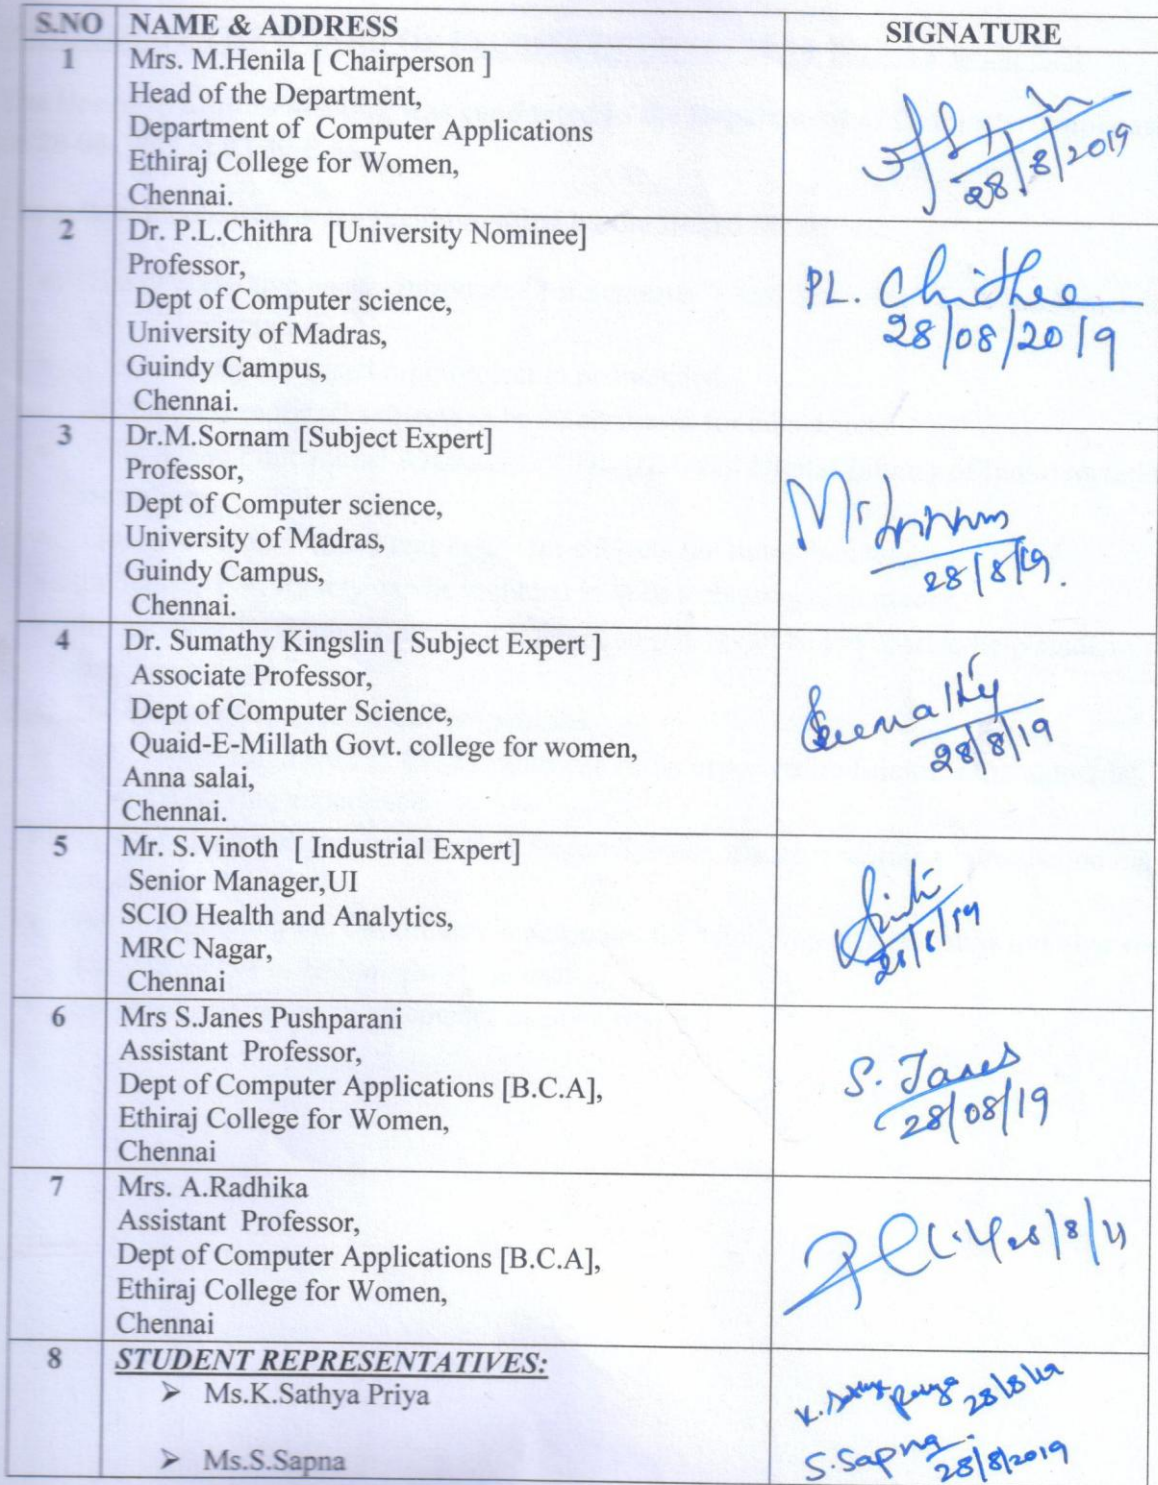 S.NO NAME & ADDRESS SIGNATURE
1 Mrs. M.Henila [ Chairperson ]
Head of the Department,
Department of Computer Applications
Ethiraj College for Women,
Chennai.
28/8/2019
2 Dr. P.L.Chithra [University Nominee]
Professor,
Dept of Computer science,
University of Madras,
Guindy Campus,
Chennai.
PL. Chithra
28/08/2019
3 Dr.M.Sornam [Subject Expert]
Professor,
Dept of Computer science,
University of Madras,
Guindy Campus,
Chennai.
28/8/19.
4 Dr. Sumathy Kingslin [ Subject Expert ]
Associate Professor,
Dept of Computer Science,
Quaid-E-Millath Govt. college for women,
Anna salai,
Chennai.
Sumathy
28/8/19
5 Mr. S.Vinoth [ Industrial Expert]
Senior Manager,UI
SCIO Health and Analytics,
MRC Nagar,
Chennai
28/8/19
6 Mrs S.Janes Pushparani
Assistant Professor,
Dept of Computer Applications [B.C.A],
Ethiraj College for Women,
Chennai
S. Janes
28/08/19
7 Mrs. A.Radhika
Assistant Professor,
Dept of Computer Applications [B.C.A],
Ethiraj College for Women,
Chennai
28/8/19
8 STUDENT REPRESENTATIVES:
➢ Ms.K.Sathya Priya
K. Sathya Priya 28/8/19
➢ Ms.S.Sapna
S.Sapna 28/8/2019